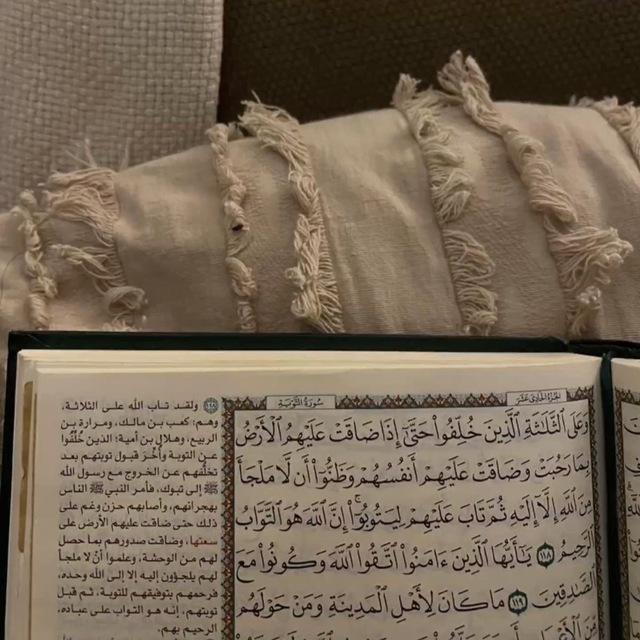 الجزء الحادي عشر
سورة التوبة
وَعَلَى ٱلثَّلَٰثَةِ ٱلَّذِينَ خُلِّفُوا۟ حَتَّىٰٓ إِذَا ضَاقَتْ عَلَيْهِمُ ٱلْأَرْضُ
بِمَا رَحُبَتْ وَضَاقَتْ عَلَيْهِمْ أَنفُسُهُمْ وَظَنُّوٓا۟ أَن لَّا مَلْجَأَ
مِنَ ٱللَّهِ إِلَّآ إِلَيْهِ ثُمَّ تَابَ عَلَيْهِمْ لِيَتُوبُوٓا۟ ۚ إِنَّ ٱللَّهَ هُوَ ٱلتَّوَّابُ
ٱلرَّحِيمُ ١١٨ يَٰٓأَيُّهَا ٱلَّذِينَ ءَامَنُوا۟ ٱتَّقُوا۟ ٱللَّهَ وَكُونُوا۟ مَعَ
ٱلصَّٰدِقِينَ ١١٩ مَا كَانَ لِأَهْلِ ٱلْمَدِينَةِ وَمَنْ حَوْلَهُم
١١٨ ولقد تاب الله على الثلاثة،
وهم: كعب بن مالك، ومرارة بن
الربيع، وهلال بن أمية: الذين خُلِّفُوا
عن التوبة وأُخِّرَ قبول توبتهم بعد
تخلُّفهم عن الخروج مع رسول الله
ﷺ إلى تبوك، فأمر النبي ﷺ الناس
بهجرانهم، وأصابهم حزن وغم على
ذلك حتى ضاقت عليهم الأرض على
سعتها، وضاقت صدورهم بما حصل
لهم من الوحشة، وعلموا أنْ لا ملجأ
لهم يلجؤون إليه إلا إلى الله وحده،
فرحمهم بتوفيقهم للتوبة، ثم قبل
توبتهم، إنه هو التواب على عباده،
الرحيم بهم.